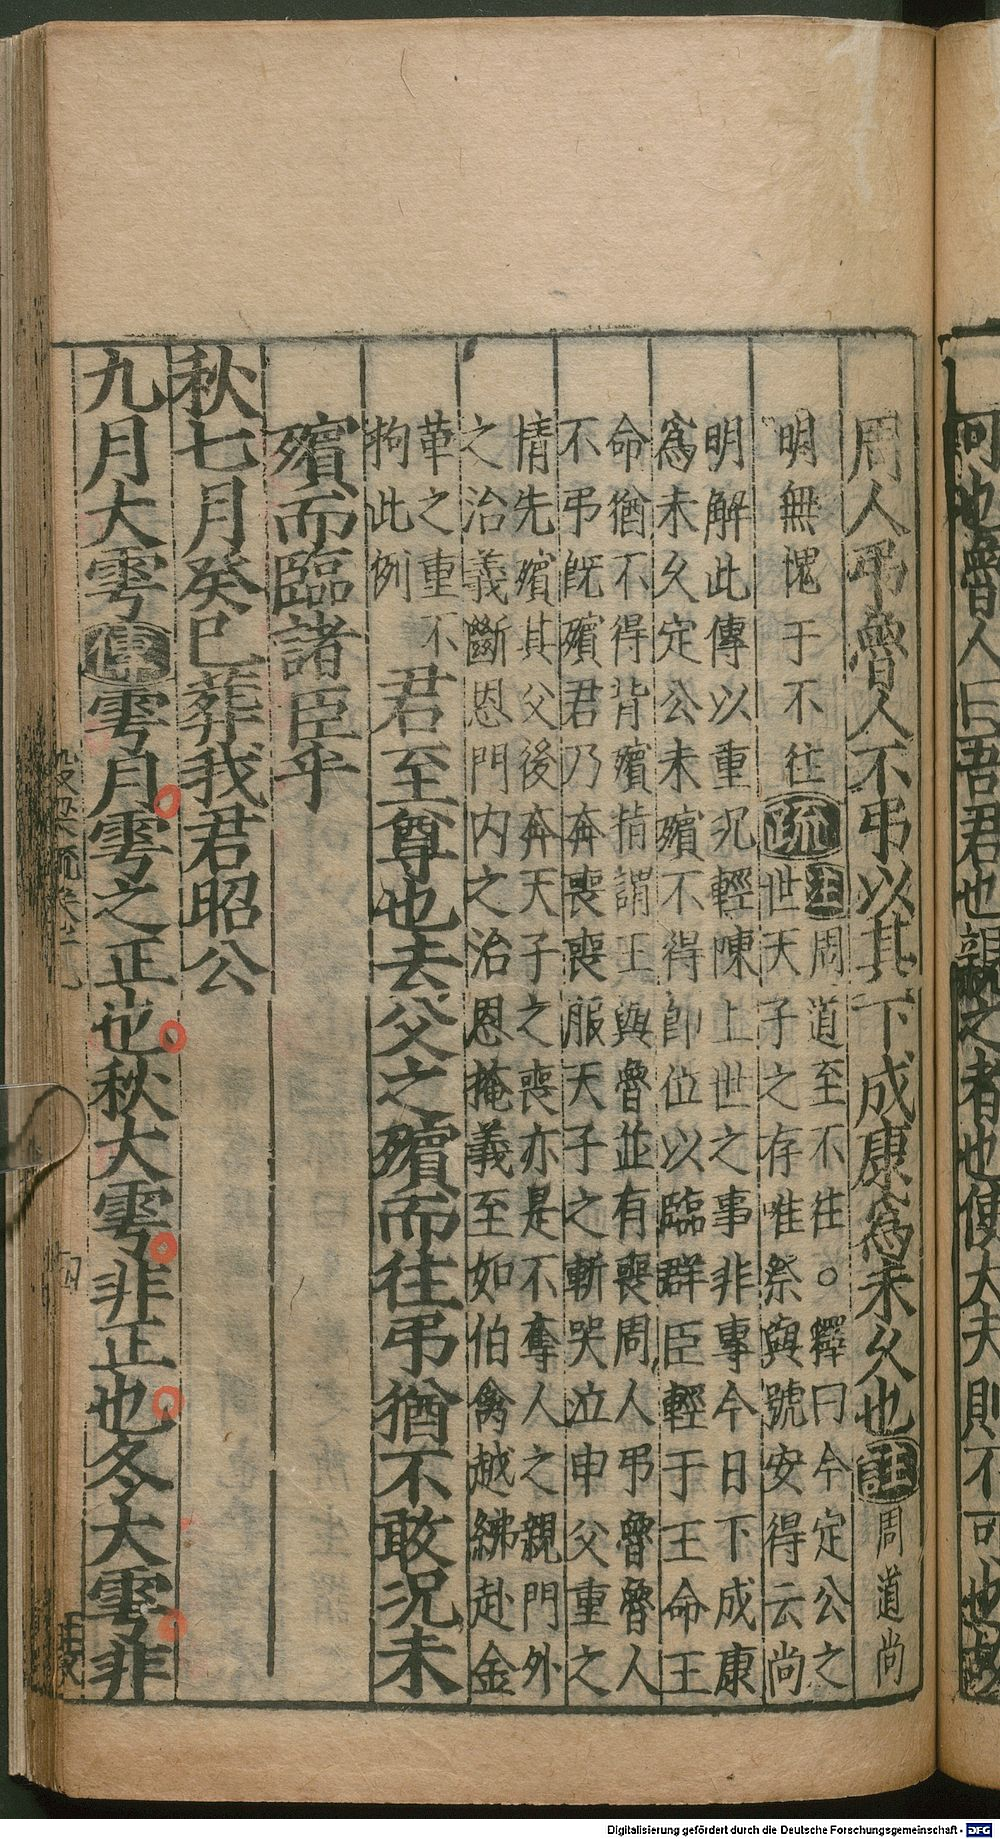 何也魯人曰吾君也親之者也使大夫則不可也故
周人弔魯人不弔以其下成康為未久也註周道尚
明無愧于不往疏註周道至不往○釋曰今定公之
世天子之存唯祭與號安得云尚
明解此傳以重況輕陳上世之事非專今日下成康
為未久定公未殯不得即位以臨群臣輕于王命王
命猶不得背殯情謂王與魯並有喪周人弔魯魯人
不弔既殯君乃奔喪喪服天子之斬哭泣申父重之
情先殯其父後奔天子之喪亦是不奪人之親門外
之治義斷恩門內之治恩掩義至如伯禽越紼赴金
革之重不
拘此例
君至尊也去父之殯而往弔猶不敢況未
殯而臨諸臣乎
秋七月癸巳葬我君昭公
九月大雩傳雩月雩之正也秋大雩非正也冬大雩非
Digitalisierung gefördert durch die Deutsche Forschungsgemeinschaft - DFG